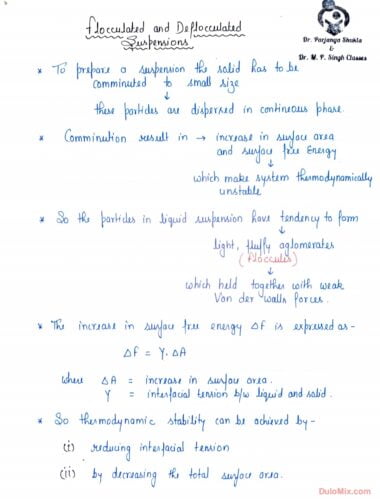 Flocculated and Deflocculated
Suspensions
Dr. Parjanya Shukla
&
Dr. M. P. Singh Classes
* To prepare a suspension the solid has to be
comminuted to small size
↓
these particles are dispersed in continuous phase.
* Comminution result in → increase in surface area
and surface free Energy
↓
which make system thermodynamically
unstable
* So the particles in liquid suspension have tendency to form
↓
light, fluffy aglomerates
(floccules)
↓
which held together with weak
Van der walls forces.
* The increase in surface free energy ΔF is expressed as -
ΔF = Y·ΔA
where ΔA = increase in surface area.
Y = interfacial tension b/w liquid and solid.
* So thermodynamic stability can be achieved by -
(i) reducing interfacial tension
(ii) by decreasing the total surface area.
DuloMix.com